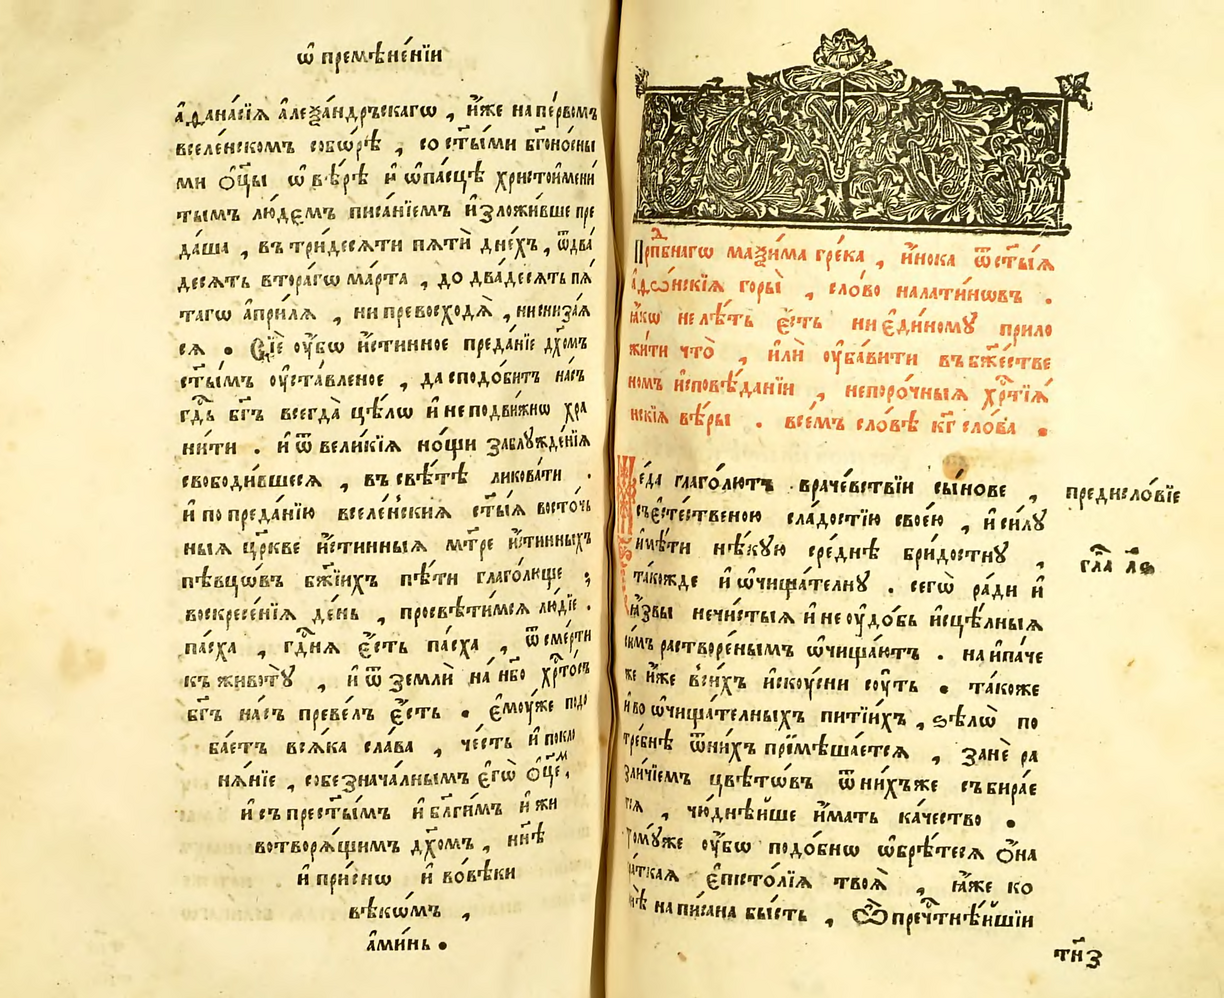 ѡ҆ премѣне́нїи
а҆ѳана́сїѧ а҆леѯа́ндръскагѡ , и҆́же на пе́рвомъ
вселе́нскомъ собѡ́рѣ , со ст҃ы́ми бг҃оно́сны
ми ѻ҆ц҃ы̀ ѡ҆ вѣ́рѣ и҆ ѡ҆ па́сцѣ христоимени́
тымъ лю́демъ писа́нїемъ и҆зложи́вше пре
да́ша , въ три́десѧти пѧтѝ дне́хъ , ѿ два́
десѧтъ вторагѡ ма́рта , до два́десѧтъ пѧ́
тагѡ а҆прі́лѧ , ни превосходѧ̀ , ни снизаѧ̀
сѧ . Сїѐ ᲂу҆́бѡ и҆́стинное преда́нїе дх҃омъ
ст҃ы́мъ ᲂу҆ста́вленое , да сподо́битъ на́съ
гдⷭ҇ь бг҃ъ всегда̀ цѣ́лѡ и҆ неподви́жнѡ хра
ни́ти . и҆ ѿ вели́кїѧ но́щи заблꙋжде́нїѧ
свободи́вшесѧ , въ свѣ́тѣ ликова́ти .
и҆ по преда́нїю вселе́нскиѧ ст҃ы́ѧ восто́ч
ныѧ цр҃кве и҆́стинныѧ мт҃ре и҆́стинныхъ
пѣвцѡ́въ бж҃їихъ пѣ́ти глаго́люще ;
воскресе́нїѧ де́нь , просвѣти́мсѧ лю́дїе .
па́сха , гдⷭ҇нѧ є҆́сть па́сха , ѿ сме́рти
къ животꙋ̀ , и҆ ѿ землѝ на нб҃о хрⷭ҇то́съ
бг҃ъ на́съ преве́лъ є҆́сть . є҆мꙋ́же подо
ба́етъ всѧ́ка сла́ва , че́сть и҆ покло
нѧ́нїе , со безнача́лнымъ є҆гѡ̀ ѻ҆ц҃е́мъ ,
и҆ съ прест҃ы́мъ и҆ бл҃ги́мъ и҆ жи
вотворѧ́щимъ дх҃омъ , нн҃ѣ
и҆ при́снѡ и҆ во вѣ́ки
вѣкѡ́мъ ,
а҆ми́нь .
Прⷣпбнагѡ маѯи́ма гре́ка , и҆́нока ѿ ст҃ы́ѧ
а҆ѳѡ́нскїѧ горы̀ , сло́во на лати́нѡвъ .
ꙗ҆́кѡ не лѣ́ть є҆́сть ни є҆ди́номꙋ прило
жи́ти что̀ , и҆лѝ ᲂу҆ба́вити въ бж҃е́стве
номъ и҆сповѣ́данїи , непоро́чныѧ хрⷭ҇тїѧ́
нскїѧ вѣ́ры . всѣ́мъ словѣ кг҃ сло́ва .
Ѡ҆е́да глаго́лютъ враче́вствїи сы́нове ,
съ є҆сте́ственою сла́достїю свое́ю , и҆ си́лꙋ
и҆мѣ́ти нѣ́кꙋю сре́днѣ бри́достнꙋ ,
та́кожде и҆ ѡ҆чища́телнꙋ . сегѡ̀ ра́ди и҆
ꙗ҆́звы нечи́стыѧ и҆ не ᲂу҆до́бь и҆сцѣ́лныѧ
си́мъ растворе́нымъ ѡ҆чища́ютъ . наипа́че
же и҆́же въ си́хъ и҆скꙋ́сни сꙋ́ть . та́коже
и҆ во ѡ҆чища́телныхъ пити́ихъ , ѕѣлѡ̀ по
тре́бнѣ ѿ ни́хъ прїмѣша́етсѧ , занѐ ра
зли́чїемъ цвѣтѡ́въ ѿ ни́хъже събира́е
тсѧ , чю́днѣйше и҆́мать ка́чество .
томꙋ́же ᲂу҆́бѡ подо́бнѡ ѡ҆брѣ́тесѧ ѻ҆́на
кра́ткаѧ є҆пїсто́лїѧ твоѧ̀ , ꙗ҆́же ко
мнѣ̀ напи́сана бы́сть , Ѡ҆ пречⷭ҇тнѣ́йшїи
предисло́вїе
гла҃ ла҃
тн҃з